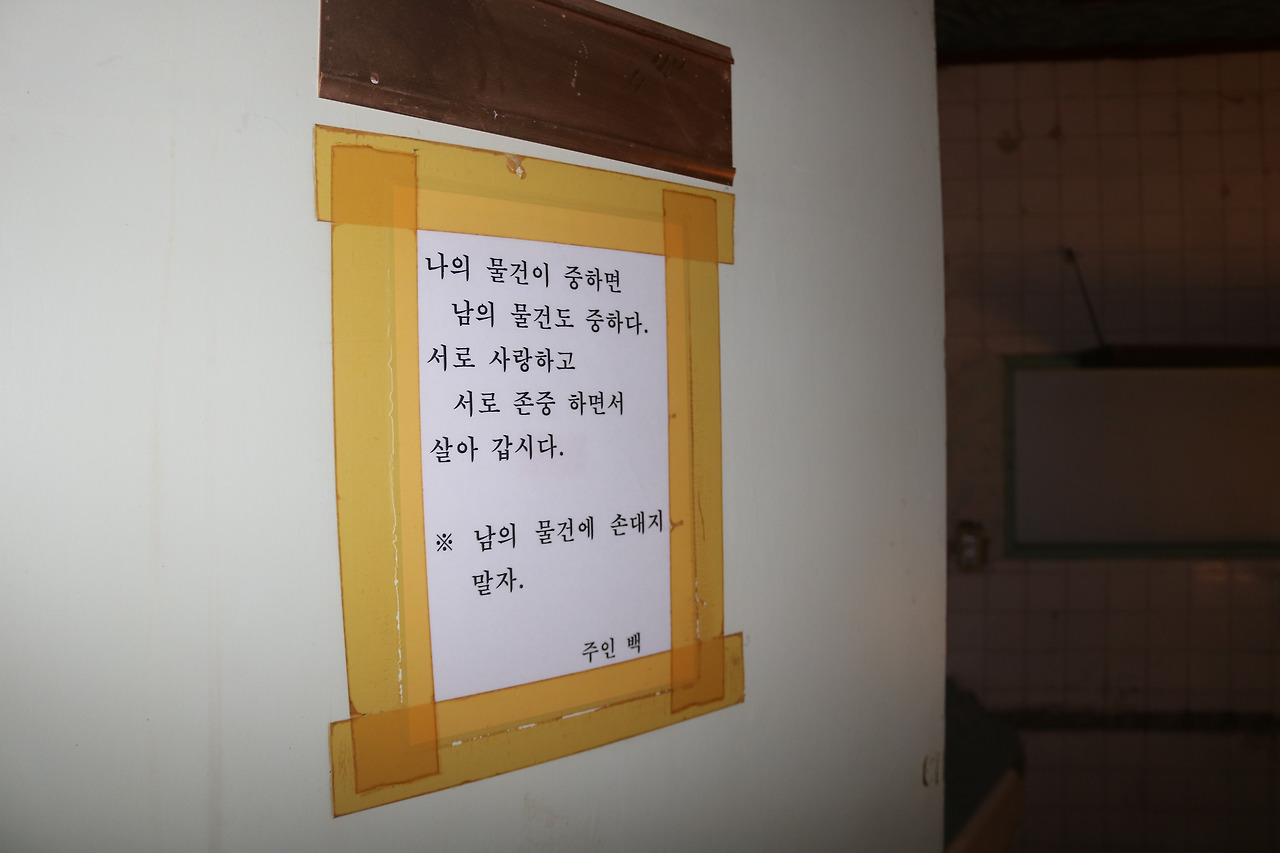 나의 물건이 중하면
남의 물건도 중하다.
서로 사랑하고
서로 존중 하면서
살아 갑시다.
※ 남의 물건에 손대지
말자.
주인 백